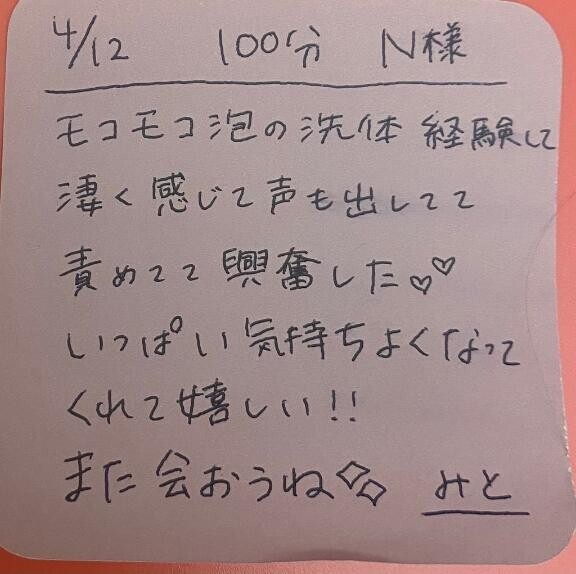 4/12 100分 N様
モコモコ泡の洗体 経験して
凄く感じて声も出してて
責めてて興奮した♡♡
いっぱい気持ちよくなって
くれて嬉しい!!
また会おうね みと